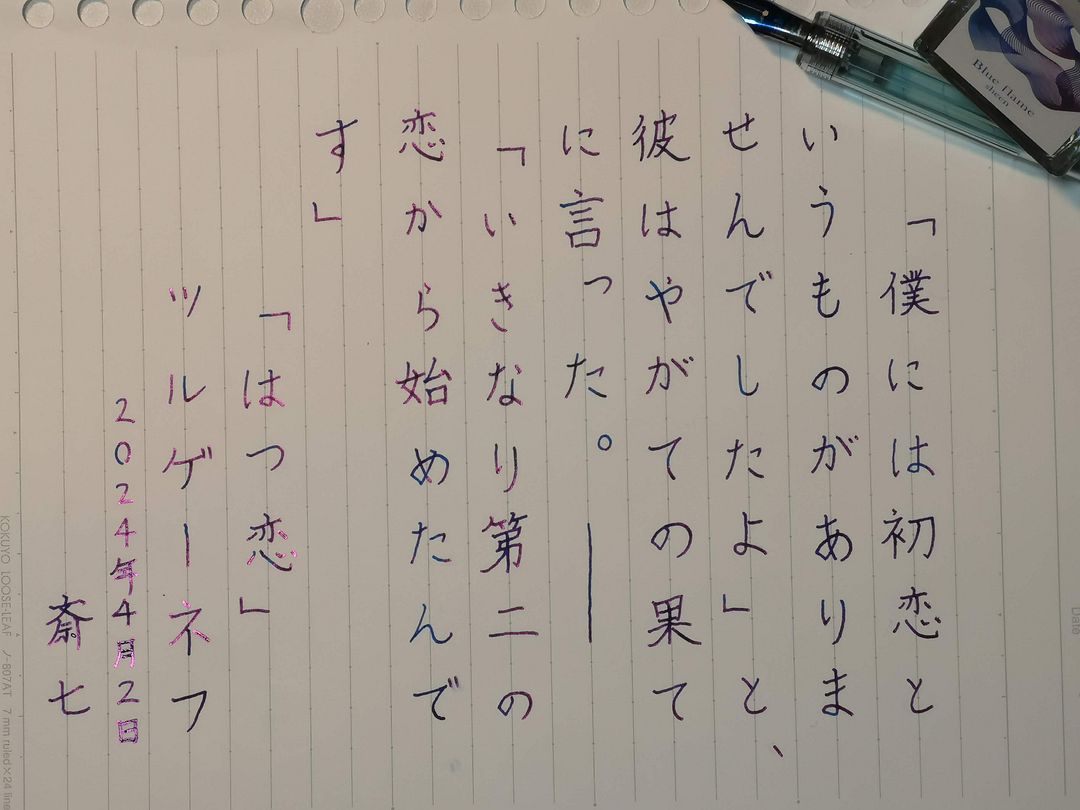 「僕には初恋と
いうものがありま
せんでしたよ」と、
彼はやがての果て
に言った。――
「いきなり第二の
恋から始めたんで
す」
「はつ恋」
ツルゲーネフ
2024年4月2日
斎七
Blue flame
sheen
Date
KOKUYO LOOSE-LEAF ノ-807AT 7 mm ruled×24 line